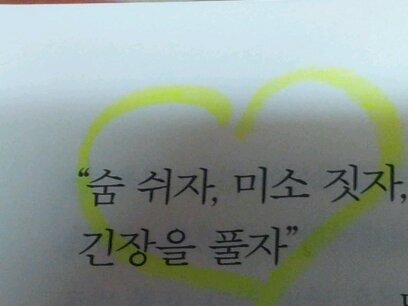 “숨 쉬자, 미소 짓자,
긴장을 풀자”